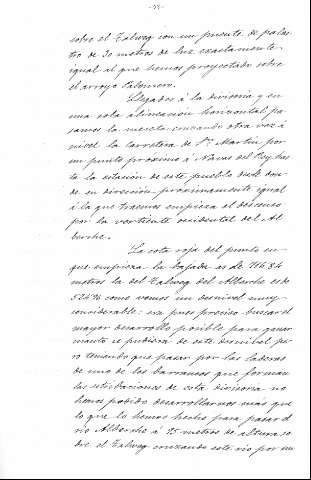 sobre el Talweg con un puente de palas-
tro de 30 metros de luz exactamente
igual al que hemos proyectado sobre
el arroyo Palomero.
Llegados á la divisoria y en
una sola alineación horizontal pa-
samos la meseta cruzando otra vez á
nivel la carretera de Sn. Martin por
un punto proximo á Navas del Rey has-
ta la estación de este pueblo desde don-
de en dirección proximamente igual
á la que traemos empieza el descenso
por la vertiente occidental del Al-
berche.
La cota roja del punto en
que empieza la bajada es de
metros la del Talweg del Alberche es de
como vemos un desnivel muy
considerable: era pues preciso buscar el
mayor desarrollo posible para ganar
cuanto se pudiera de este desnivel pe-
ro teniendo que pasar por las laderas
de uno de los barrancos que forman
las estribaciones de esta divisoria no
hemos podido desarrollarnos más que
lo que lo hemos hecho para pasar el
rio Alberche á 15 metros de altura so-
bre el Talweg cruzando este rio por un